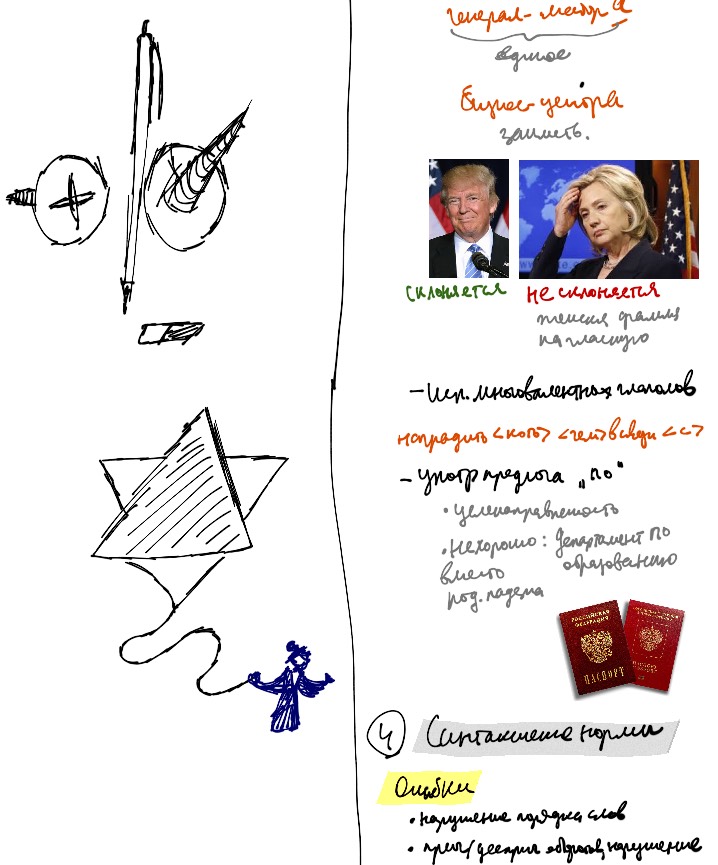 генерал-майора
единое
бизнес-центра
СКЛОНЯЕТСЯ
НЕ СКЛОНЯЕТСЯ
женская фамилия
на гласную
– Исп. многовалентных глаголов
наградить <кого> <чем>
– употр предлога „ПО“
• целенаправленность
• Нехорошо: Департамент ПО
вместо образованию
род. падежа
РОССИЙСКАЯ
ФЕДЕРАЦИЯ
ПАСПОРТ
4 Синтаксические нормы
Ошибки
• нарушение порядка слов
• прич/дееприч оборотов, нарушение